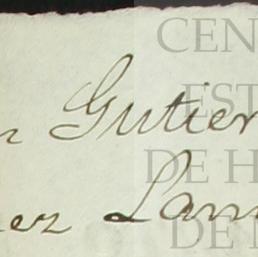 n Gutier
ez Lan
CEN
EST
DE H
DE N